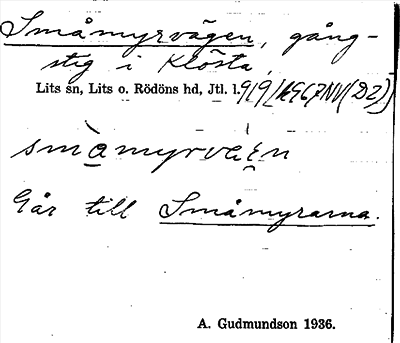 Småmyrvägen, gång-
stig i Klösta,
Lits sn, Lits o. Rödöns hd, Jtl. l. 19G7NV(D2)
Går till Småmyrarna.
A. Gudmundson 1936.